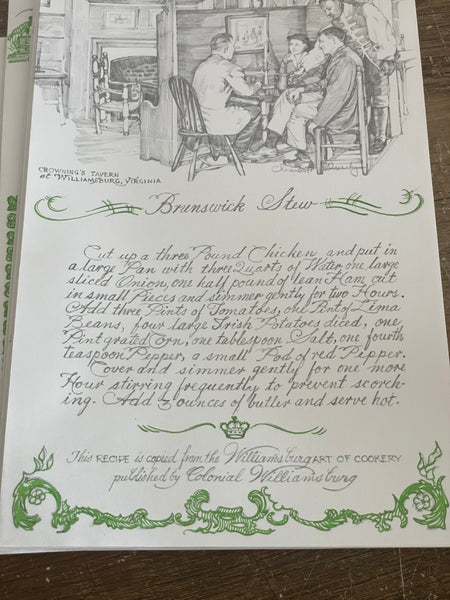 CROWNING'S TAVERN
at WILLIAMSBURG, VIRGINIA
Brunswick Stew
Cut up a three Pound Chicken, and put in
a large Pan with three Quarts of Water, one large
sliced Onion, one half pound of lean Ham cut
in small Pieces and simmer gently for two Hours.
Add three Pints of Tomatoes, one Pint of Lima
Beans, four large Irish Potatoes diced, one
Pint grated Corn, one tablespoon Salt, one fourth
teaspoon Pepper, a small Pod of red Pepper.
Cover and simmer gently for one more
Hour stirring frequently to prevent scorch-
ing. Add 3 ounces of butter and serve hot.
This RECIPE is copied from the Williamsburg ART OF COOKERY
published by Colonial Williamsburg